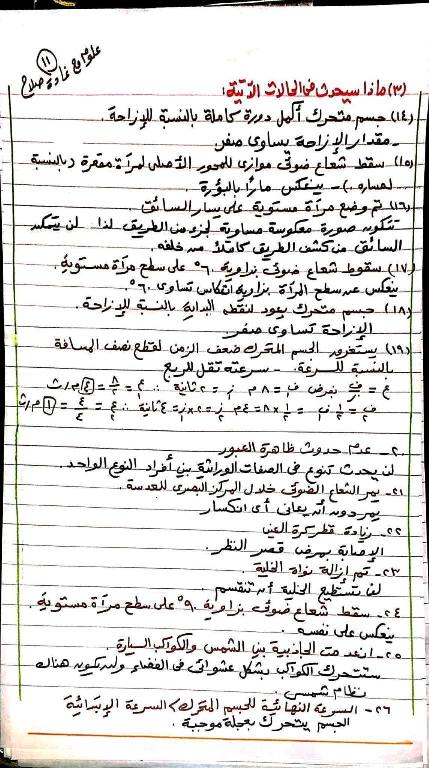 علوم مع غادة صلاح
١١
(٣) ماذا سيحدث فى الحالات الآتية:
(١٤) جسم متحرك أكمل دورة كاملة بالنسبة للإزاحة.
- مقدار الإزاحة يساوى صفر
(١٥) سقط شعاع ضوئى موازى للمحور الأصلى لمرآة مقعرة (بالنسبة
لمساره) - ينعكس مارًا بالبؤرة
(١٦) تم وضع مرآة مستوية على يسار السائق.
تتكون صورة معكوسة مساوية لجزء من الطريق لذا لن يتمكن
السائق من كشف الطريق كاملاً من خلفه.
(١٧) سقوط شعاع ضوئى بزاوية ٦٠° على سطح مرآة مستوية.
ينعكس عن سطح المرآة بزاوية انعكاس تساوى ٦٠°
(١٨) جسم متحرك يعود لنقطة البداية بالنسبة للإزاحة.
الإزاحة تساوى صفر.
(١٩) يستغرق الجسم المتحرك ضعف الزمن لقطع نصف المسافة
بالنسبة للسرعة. - سرعته تقل للربع
ع = ف/ز نفرض ف١ = ٨ م ز١ = ٢ ثانية ∴ ع١ = ٨/٢ = ٤ م/ث
ف٢ = ١/٢ ف١ = ١/٢ × ٨ = ٤ م ز٢ = ٢ × ز١ = ٤ ثانية ∴ ع٢ = ٤/٤ = ١ م/ث
٢٠- عدم حدوث ظاهرة العبور
لن يحدث تنوع فى الصفات الوراثية بين أفراد النوع الواحد.
٢١- يمر الشعاع الضوئى خلال المركز البصرى للعدسة.
يمر دون أن يعانى أى انكسار
٢٢- زيادة قطر كرة العين
الإصابة بمرض قصر النظر.
٢٣- تم إزالة نواة الخلية.
لن تستطيع الخلية أن تنقسم.
٢٤- سقط شعاع ضوئى بزاوية ٩٠° على سطح مرآة مستوية.
ينعكس على نفسه.
٢٥- انعدمت الجاذبية بين الشمس والكواكب السيارة.
ستتحرك الكواكب بشكل عشوائى فى الفضاء ولن يكون هناك
نظام شمسى.
٢٦- السرعة النهائية للجسم المتحرك > السرعة الابتدائية
الجسم يتحرك بعجلة موجبة.